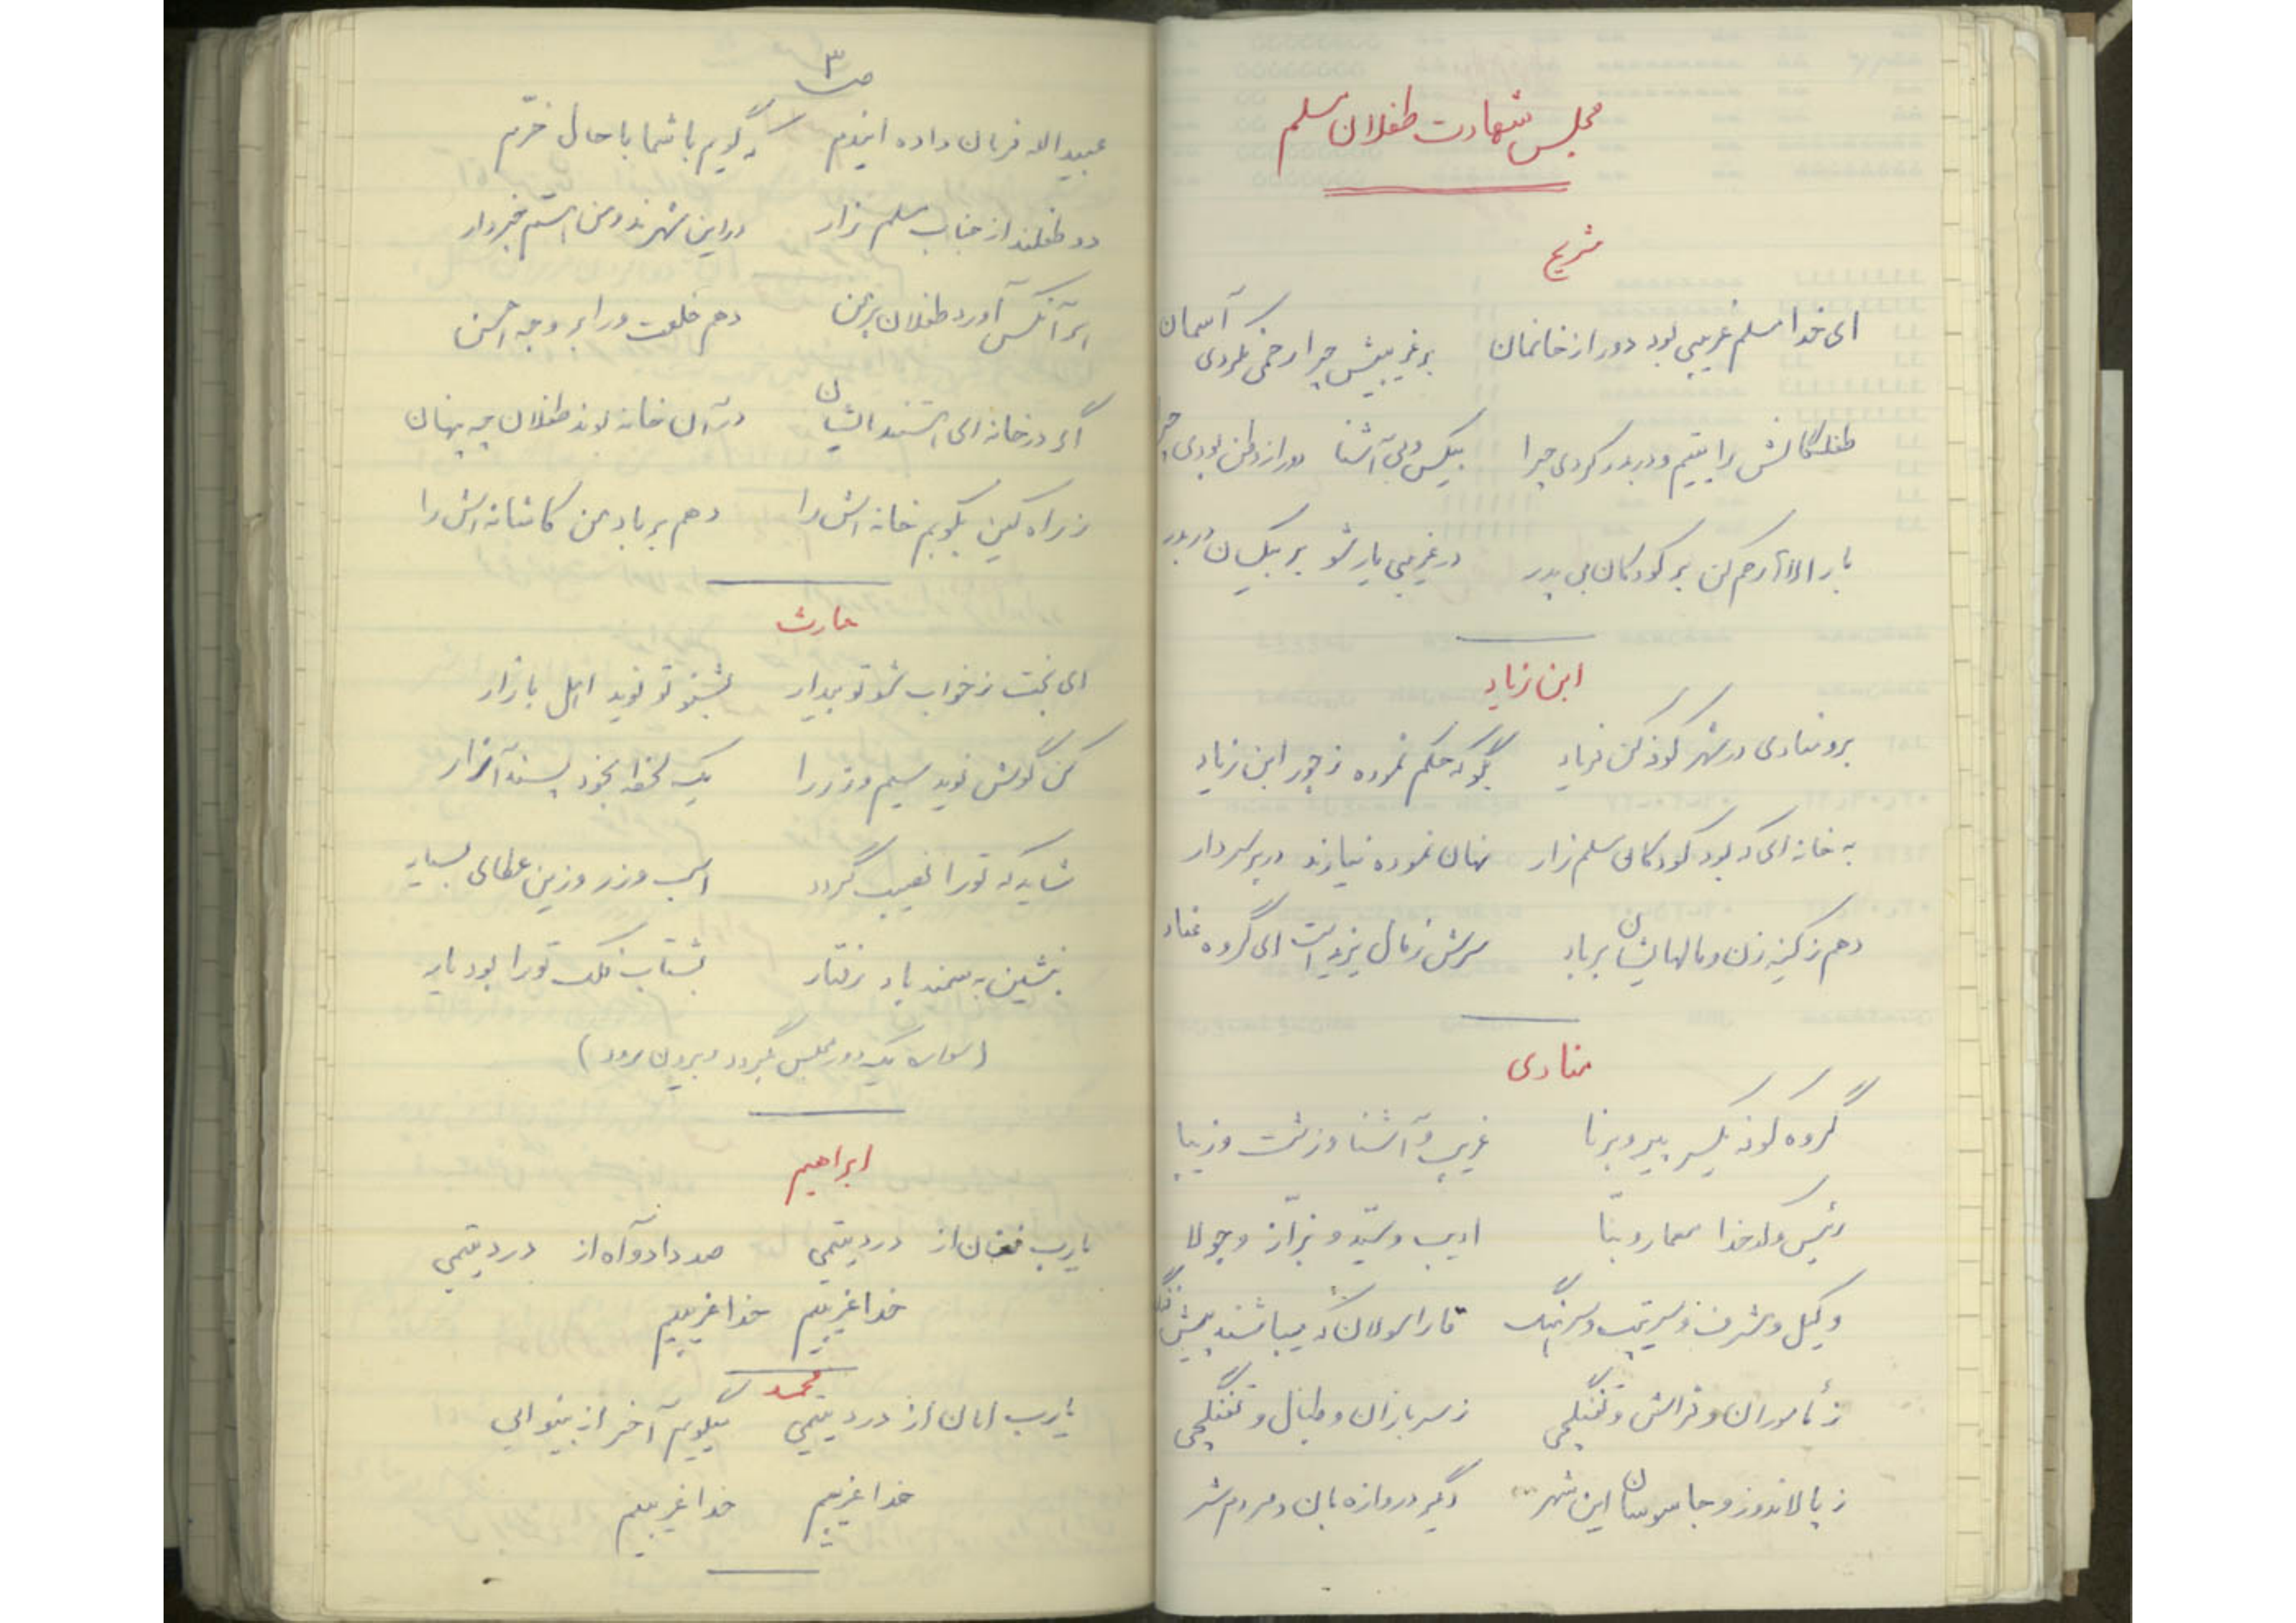 مجلس شهادت طفلان مسلم
شریح
ای خدا مسلم غریبی بود دور از خانمان بر غریبیش چرا رحمی نکردی آسمان
طفلکانش را یتیم و دربدر کردی چرا بیکس و بی آشنا دور از وطن بودی چرا
بار الاها رحم کن بر کودکان بی پدر در غریبی یار شو بر بیکسان دربدر
ابن زیاد
برو منادی در شهر کوفه کن فریاد بگو که حکم نموده ز جور ابن زیاد
به خانه ای که بود کودکان مسلم زار نهان نموده نیارند در بر سردار
دهم ز کینه زن و مالهایشان بر باد سرش ز مال یزید است ای گروه عناد
منادی
گروه کوفه یکسر پیر و برنا غریب و آشنا و زشت و زیبا
رئیس و کدخدا معمار و بنّا ادیب و سیّد و بزّاز و جولا
وکیل و مشرف و سرتیپ و سرهنگ قاراسولان که میباشند
ز مأموران و فراش و تفنگچی ز سربازان و طبال و تفنگچی
ز پالاندوز و جاسوسان این شهر دگر دروازه بان و مردم شر
ص ۳
عبیدالله فرمان داده ایندم که گویم با شما با حال خرّم
دو طفلند از جناب مسلم زار در این شهرند و من استم خبردار
هر آنکس آورد طفلان بر من دهم خلعت ورا بر وجه احسن
اگر در خانه ای استند ایشان در آن خانه بوند طفلان چه پنهان
ز راه کین بکوبم خانه اش را دهم بر باد من کاشانه اش را
حارث
ای بخت ز خواب شو تو بیدار بشنو تو نوید اهل بازار
کن گوش نوید سیم و زر را یک لحظه بخود پسند آزار
شاید که تو را نصیب گردد اسب و زر و زین عطای بسیار
بنشین به سمند باد رفتار بشتاب فلک تو را بود یار
(سواره یک دور مجلس بگردد و بیرون برود)
ابراهیم
یارب فغان از درد یتیمی صد داد و آه از درد یتیمی
خدا غریبم خدا غریبم
محمد
یارب امان از درد یتیمی میگویم آخر از بینوایی
خدا غریبم خدا غریبم